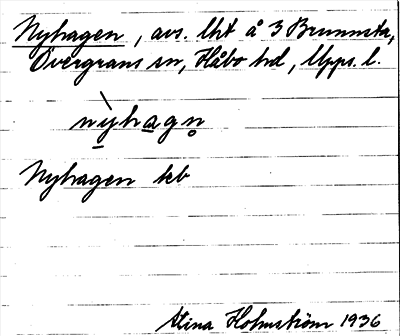 Nyhagen, avs. lht å 3 Brunnsta,
Övergrans sn, Håbo hd, Upps. l.
nỳhagn̥
Nyhagen kb
Stina Holmström 1936